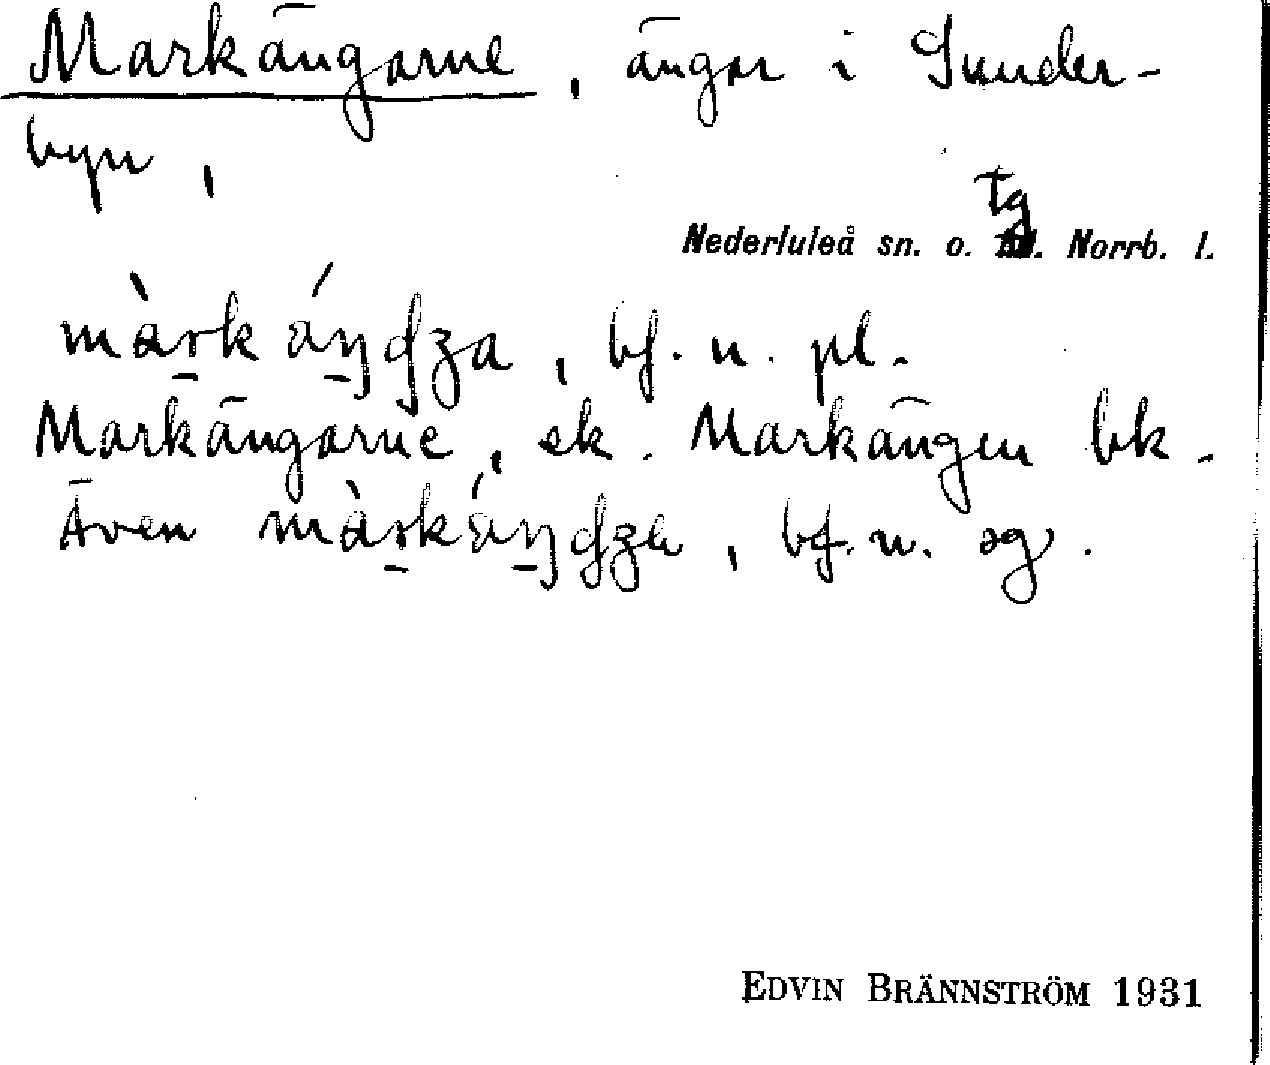 Markängarne, ängar i Sunder-
byn,
Nederluleå sn. o. tg. Norrb. l.
màrk áŋʤza, bf. n. pl.
Markängarne, ek. Markängen bk.
Även màrkáŋʤze, bf. n. sg.
EDVIN BRÄNNSTRÖM 1931